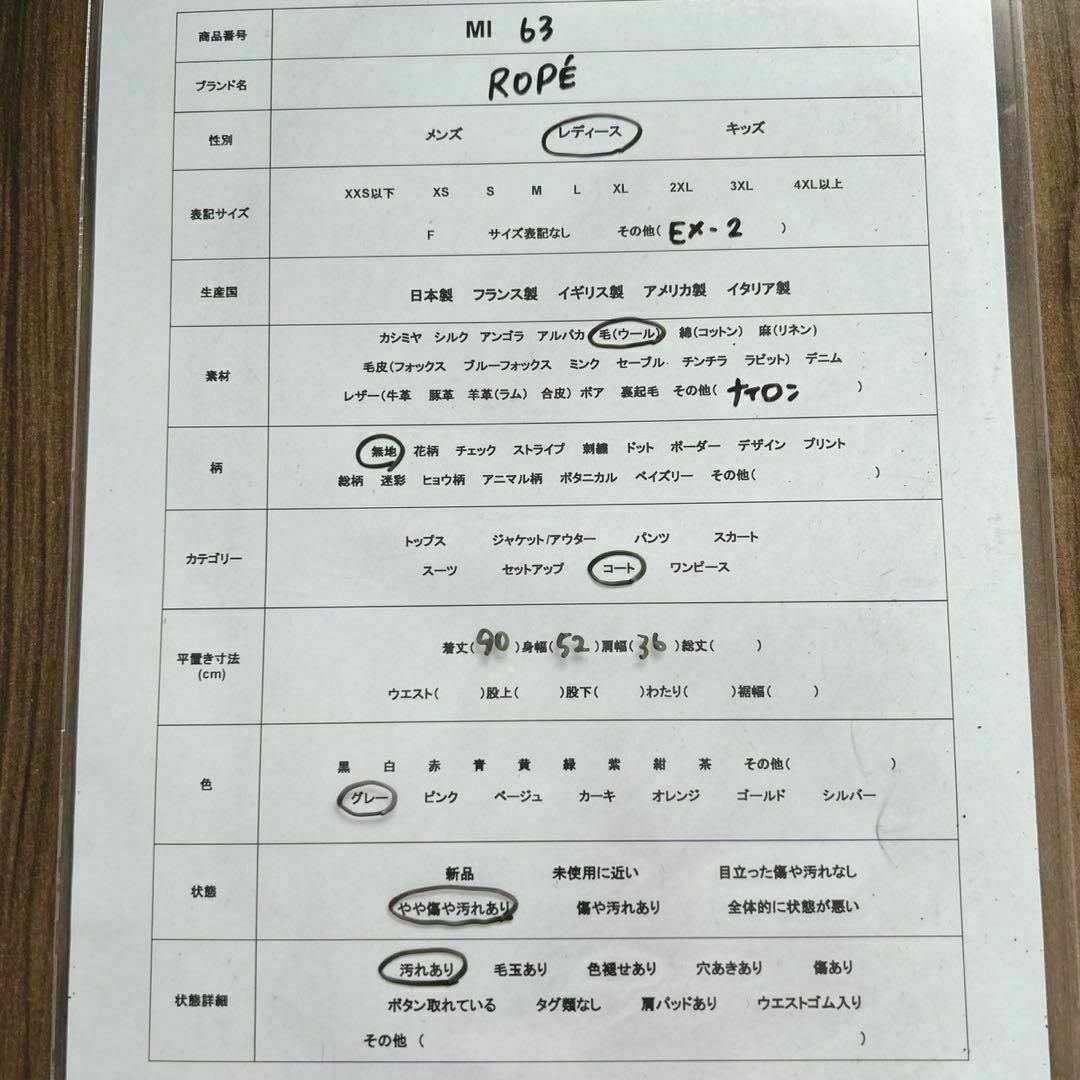 商品番号 MI 63
ブランド名 ROPÉ
性別 メンズ レディース キッズ
表記サイズ
XXS以下 XS S M L XL 2XL 3XL 4XL以上
F サイズ表記なし その他( EX-2 )
生産国 日本製 フランス製 イギリス製 アメリカ製 イタリア製
素材
カシミヤ シルク アンゴラ アルパカ 毛(ウール) 綿(コットン) 麻(リネン)
毛皮(フォックス ブルーフォックス ミンク セーブル チンチラ ラビット) デニム
レザー(牛革 豚革 羊革(ラム) 合皮) ボア 裏起毛 その他( ナイロン )
柄
無地 花柄 チェック ストライプ 刺繍 ドット ボーダー デザイン プリント
総柄 迷彩 ヒョウ柄 アニマル柄 ボタニカル ペイズリー その他( )
カテゴリー
トップス ジャケット/アウター パンツ スカート
スーツ セットアップ コート ワンピース
平置き寸法
(cm)
着丈( 90 )身幅( 52 )肩幅( 36 )総丈( )
ウエスト( )股上( )股下( )わたり( )裾幅( )
色
黒 白 赤 青 黄 緑 紫 紺 茶 その他( )
グレー ピンク ベージュ カーキ オレンジ ゴールド シルバー
状態
新品 未使用に近い 目立った傷や汚れなし
やや傷や汚れあり 傷や汚れあり 全体的に状態が悪い
状態詳細
汚れあり 毛玉あり 色褪せあり 穴あきあり 傷あり
ボタン取れている タグ類なし 肩パッドあり ウエストゴム入り
その他 ( )